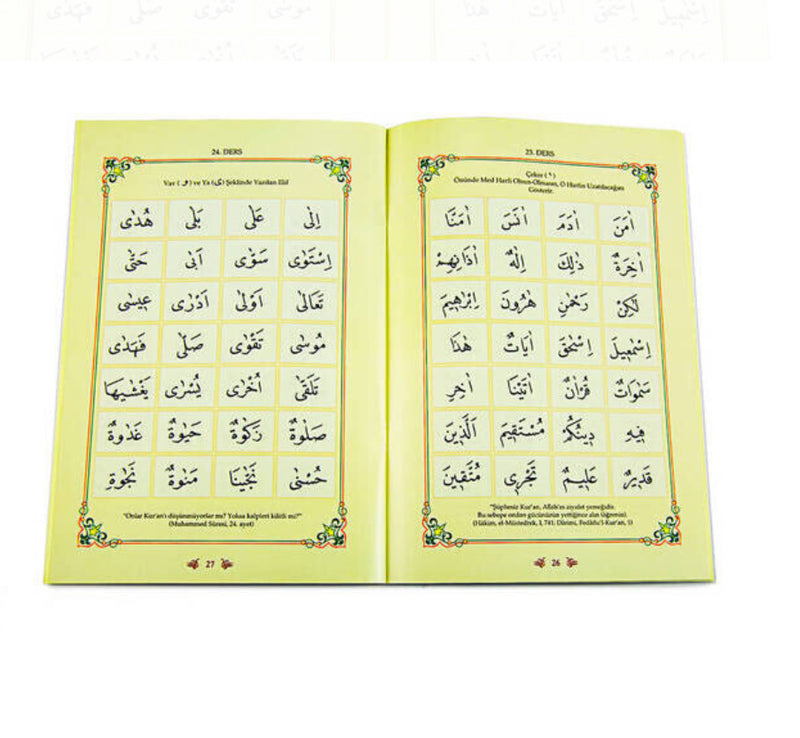 اِسْمٰعِيلَ اِسْحٰقَ اٰيَاتٌ هٰذَا
مُوسٰى تَقْوٰى صَلّٰى فَهَدٰى
23. DERS
Çeker ( ٰ )
Önünde Med Harfi Olsun-Olmasın, O Harfin Uzatılacağını
Gösterir.
اٰمَنَ اٰدَمَ اٰنَسَ اٰمَنَّا
اٰخِرَةٌ ذٰلِكَ اِلٰهٌ اٰذَانِهِمْ
لٰكِنْ رَحْمٰنِ هٰرُونَ اِبْرٰهِيمَ
اِسْمٰعِيلَ اِسْحٰقَ اٰيَاتٌ هٰذَا
سَمٰوَاتٌ قُرْاٰنٌ اٰتَيْنَا اٰخِرِ
فِيهِ دِينُكُمْ مُسْتَقِيمَ اَلَّذِينَ
قَدِيرٌ عَلِيمٌ تَجْرِى مُتَّقِينَ
"Şüphesiz Kur'an, Allah'ın ziyafet yemeğidir.
Bu sebepe ondan gücünüzün yettiğince alın (öğrenin).
(Hâkim, el-Müstedrek, I, 741; Dârimi, Fedâilu'l-Kur'an, 1)
26
24. DERS
Vav ( و ) ve Ya (ى) Şeklinde Yazılan Elif
اِلٰى عَلٰى بَلٰى هُدٰى
اِسْتَوٰى سَوّٰى اَبٰى حَتّٰى
تَعَالٰى اَوْلٰى اَدْرٰى عِيسٰى
مُوسٰى تَقْوٰى صَلّٰى فَهَدٰى
تَلَقّٰى اُخْرٰى يُسْرٰى يَغْشٰيهَا
صَلٰوةٌ زَكٰوةٌ حَيٰوةٌ غَدٰوةٌ
حُسْنٰى نَجّٰينَا مَنٰوةٌ نَجٰوةٌ
"Onlar Kur'an'ı düşünmüyorlar mı? Yoksa kalpleri kilitli mi?"
(Muhammed Sûresi, 24. ayet)
27